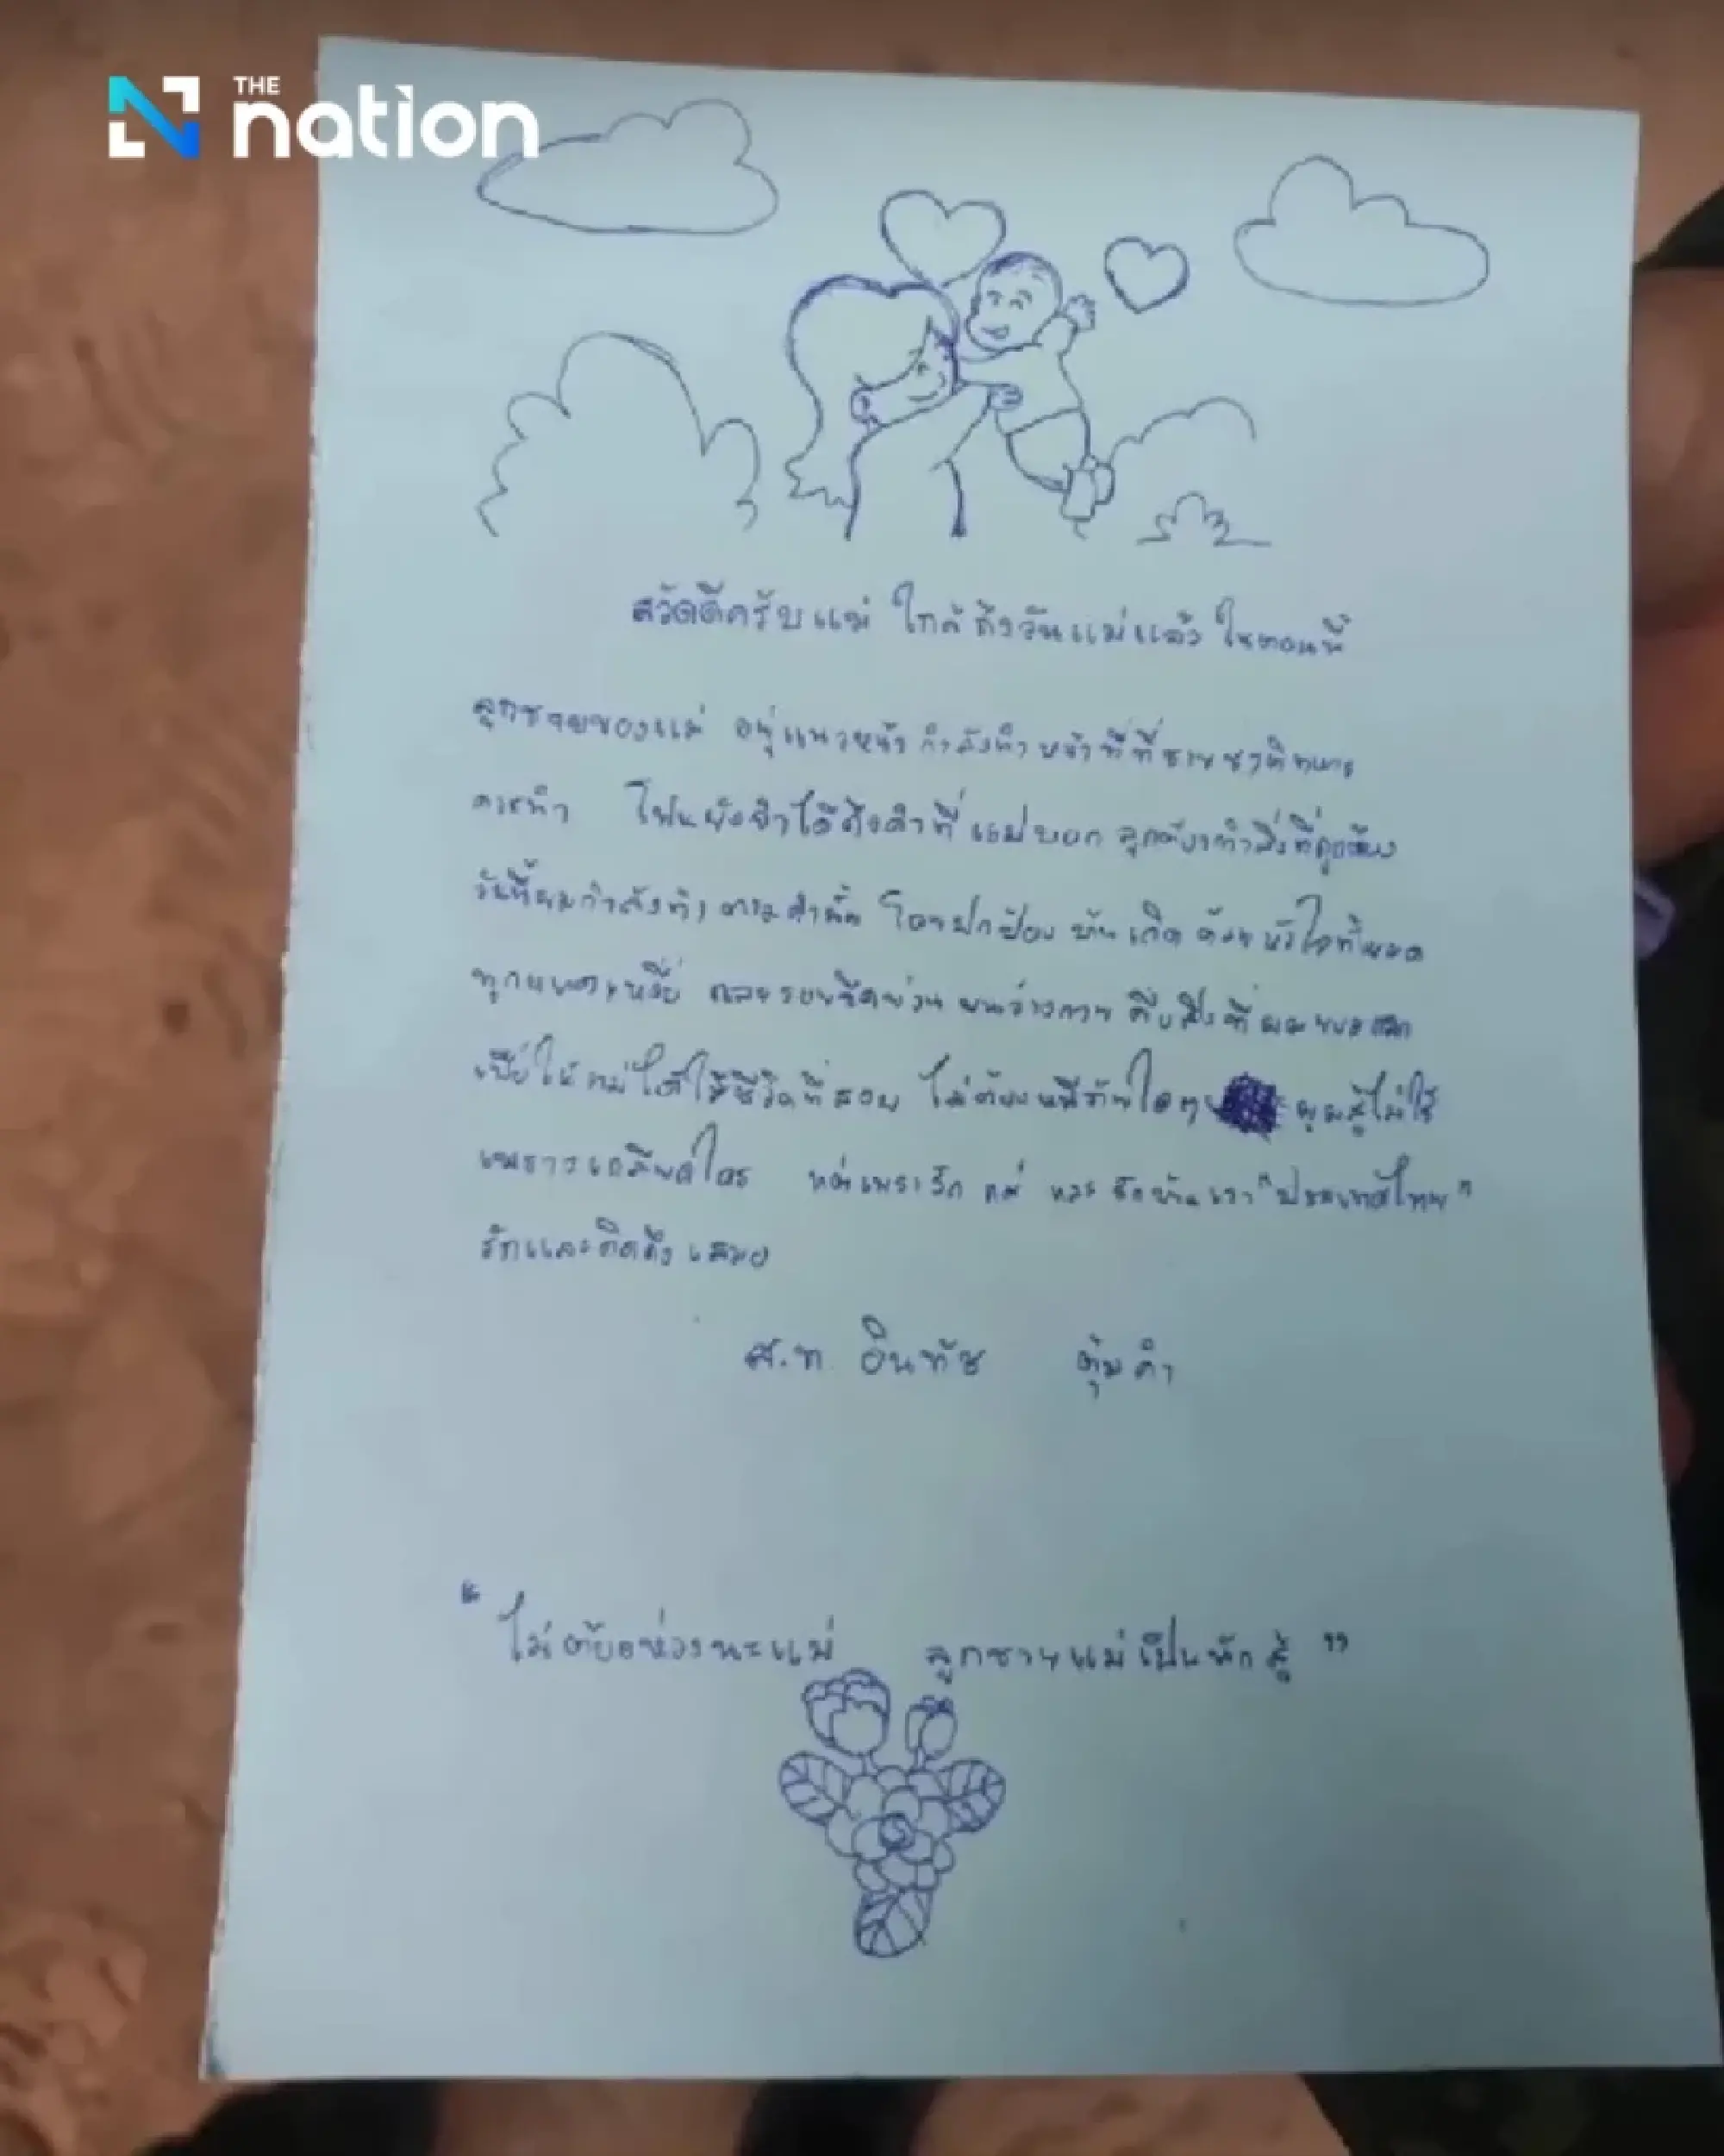 THE
nation
สวัสดีครับแม่ ใกล้ถึงวันแม่แล้ว ในตอนนี้
ลูกชายของแม่ อยู่แนวหน้า กำลังทำหน้าที่ที่ชายชาติทหาร
ควรทำ โฟนยังจำได้ถึงคำที่แม่บอก ลูกต้องทำสิ่งที่ถูกต้อง
วันนี้ผมกำลังทำตามคำนั้น โดยปกป้องบ้านเกิดด้วยหัวใจทั้งหมด
ทุกหยาดเหงื่อ และรอยขีดข่วนบนร่างกาย คือสิ่งที่ผมยอมแลก
เพื่อให้แม่ได้ใช้ชีวิตที่สงบ ไม่ต้องหนีภัยใดๆ ผมสู้ไม่ใช่
เพราะเกลียดใคร แต่เพราะรักแม่ และรักบ้านเรา "ประเทศไทย"
รักและคิดถึงเสมอ
ส.ท. อินทัช คุ้มคำ
" ไม่ต้องห่วงนะแม่ ลูกชายแม่เป็นนักสู้ "